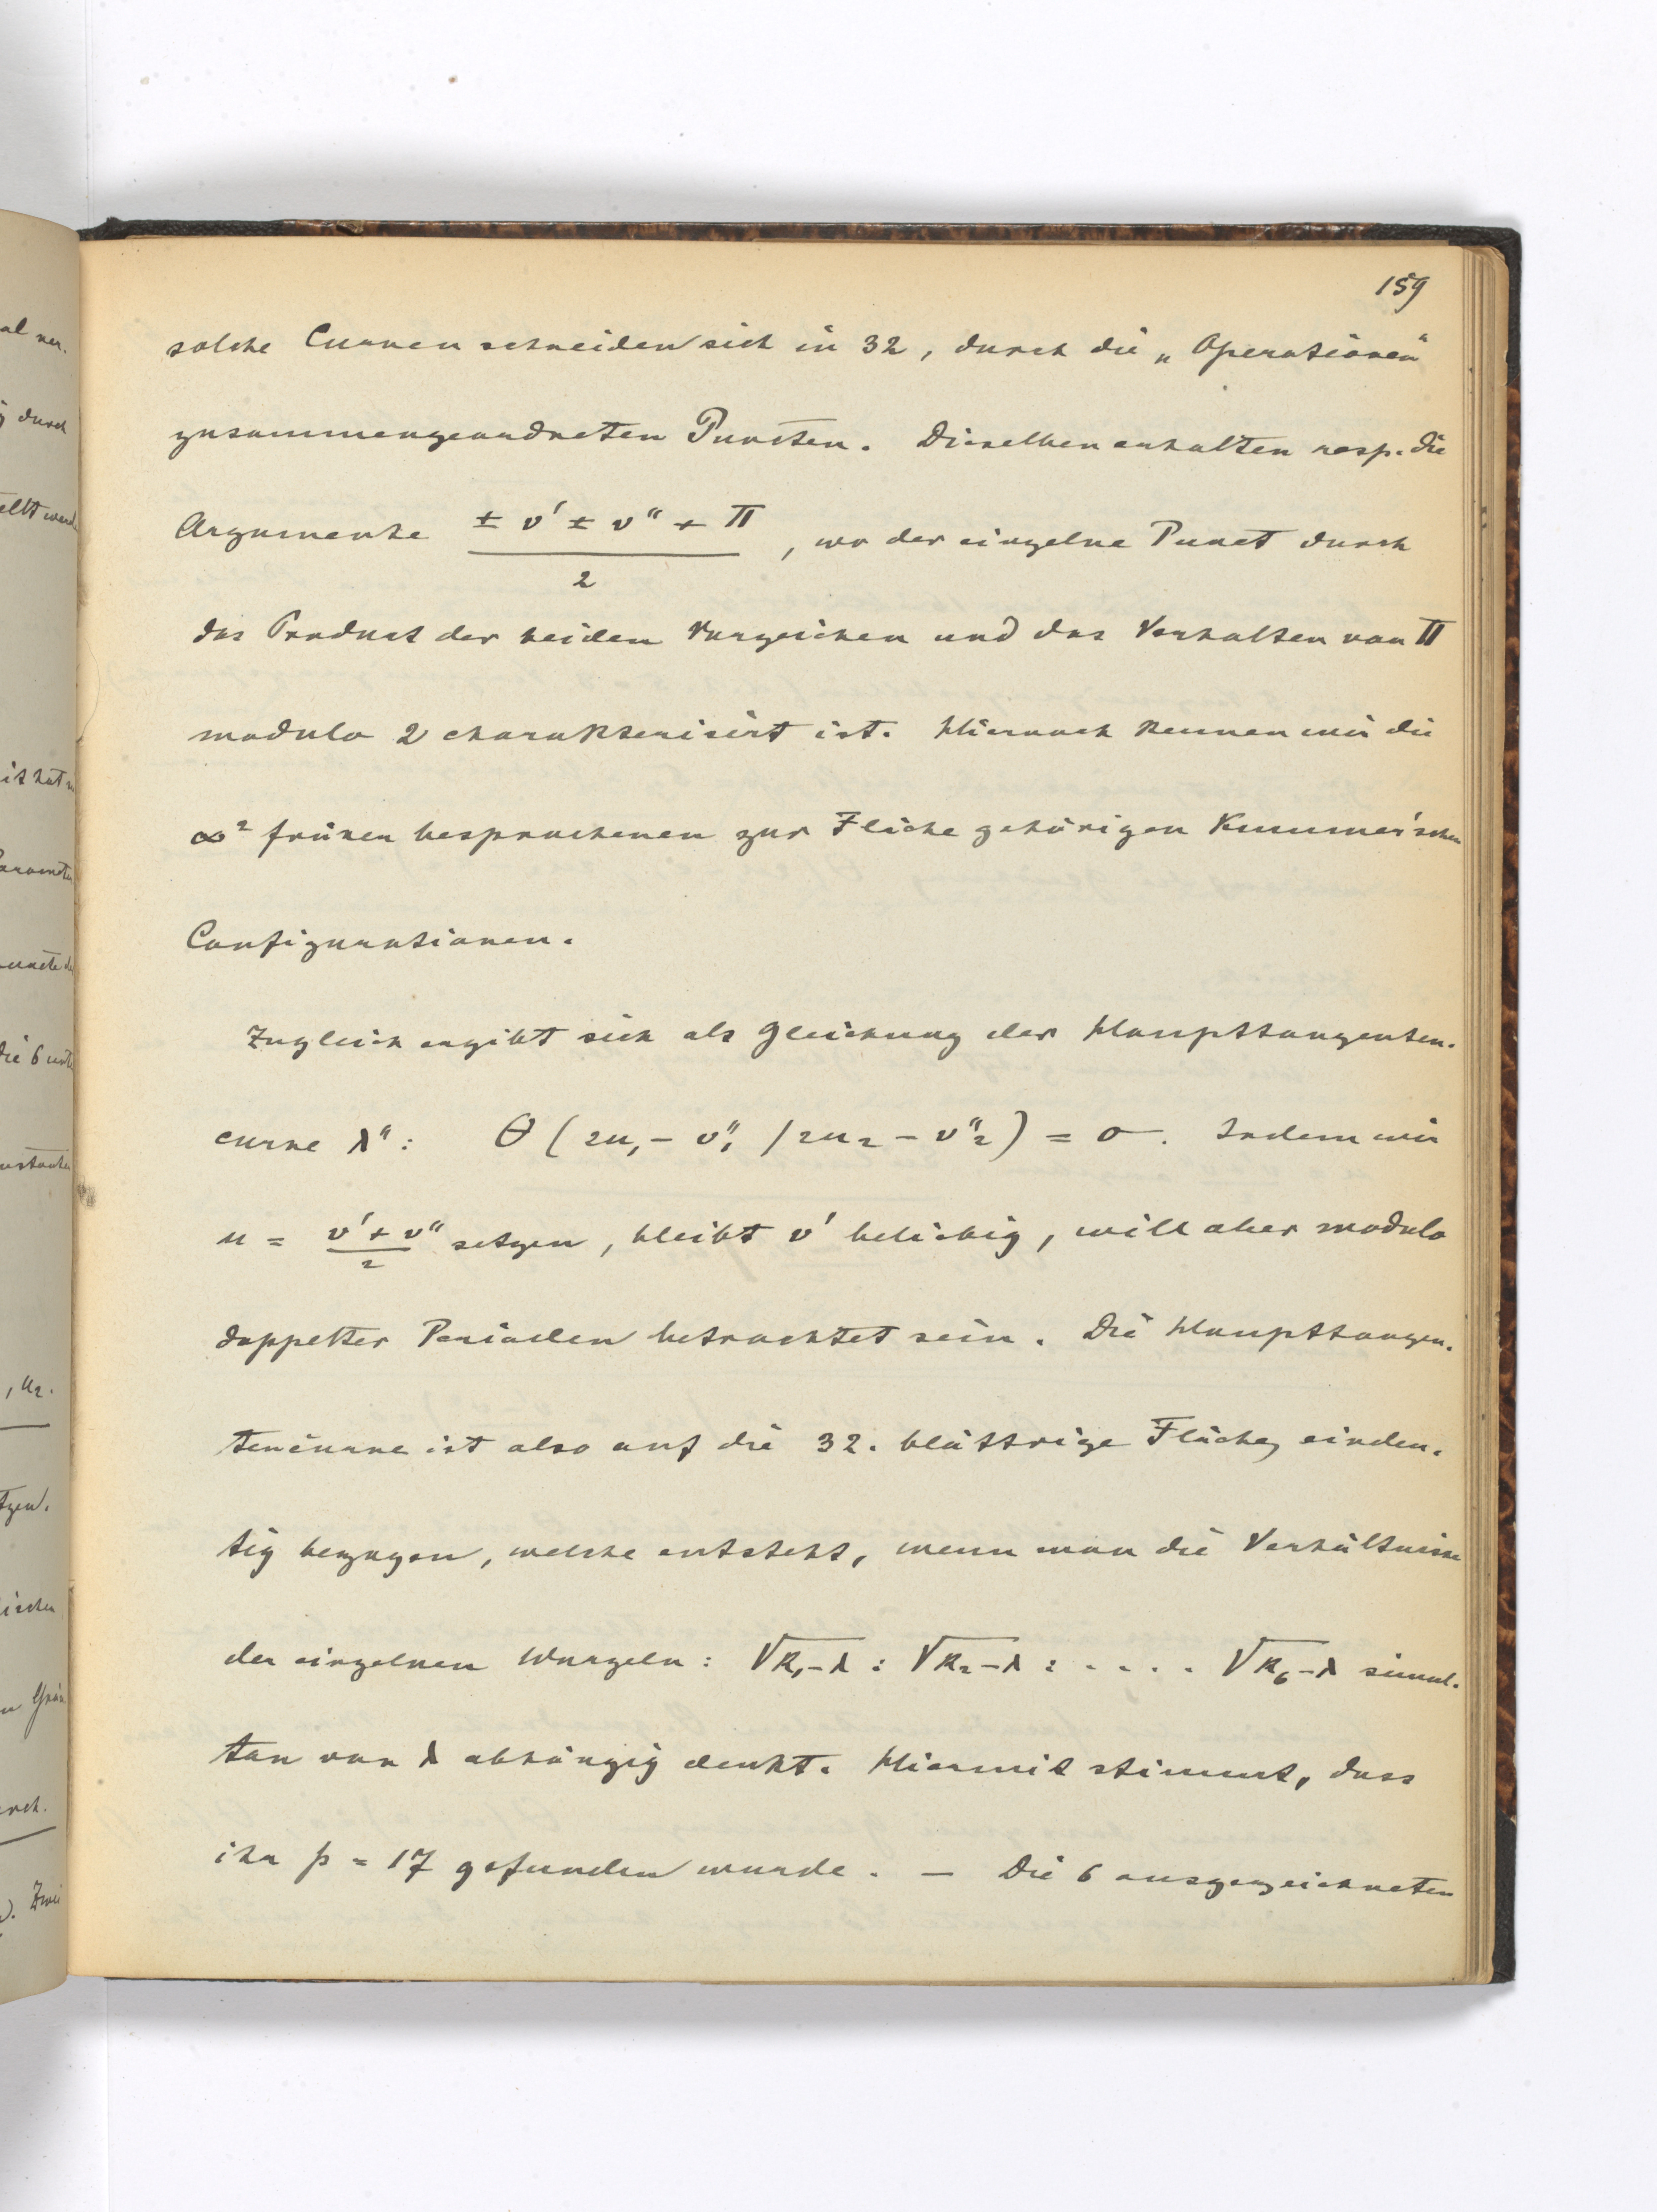 159
solche Curven schneiden sich in 32, durch die „Operationen“
zusammengeordneten Puncten. Dieselben erhalten resp. die
Argumente (± v' ± v" + Π)/2, wo der einzelne Punct durch
das Product der beiden Vorzeichen und das Verhalten von Π
modulo 2 charakterisirt ist. Hiernach kennen wir die
∞² früher besprochenen zur Fläche gehörigen Kummer'schen
Configurationen.
Zugleich ergibt sich als Gleichung der Haupttangenten-
curve λ": θ(2u₁ - v"₁ / 2u₂ - v"₂) = 0. Indem wir
u = (v' + v")/2 setzen, bleibt v' beliebig, will aber modulo
doppelter Perioden betrachtet sein. Die Haupttangen-
tencurve ist also auf die 32-blättrige Fläche eindeu-
tig bezogen, welche entsteht, wenn man die Verhältnisse
der einzelnen Wurzeln: √k₁-λ : √k₂-λ : . . . . √k₆-λ simul-
tan von λ abhängig denkt. Hiermit stimmt, dass
ihr p = 17 gefunden wurde. — Die 6 ausgezeichneten